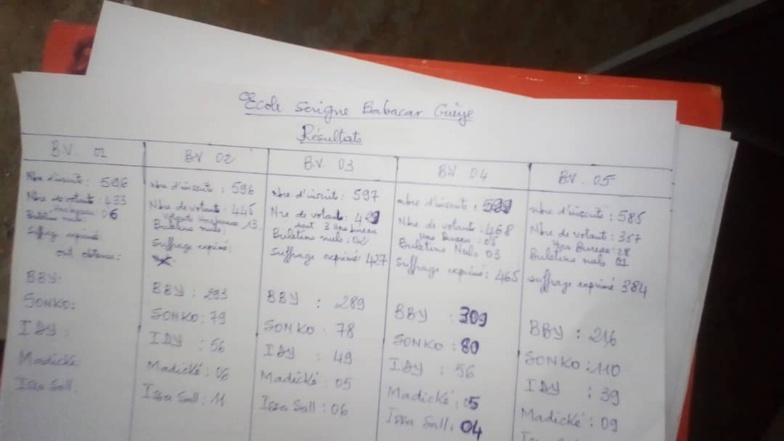 Ecole Serigne Babacar Guèye
Résultats
B.V. 01
Nbre d'inscrits : 596
Nbre de votant : 433
06
Bulletin nuls
Suffrage exprimé
ont obtenu :
BBY :
SONKO :
IDY :
Madické
Issa Sall
BV 02
Nbre d'inscrits : 596
Nbre de votants : 445
13
Bulletins nuls :
Suffrage exprimé :
BBY : 293
SONKO : 79
IDY : 56
Madické : 06
Issa Sall : 11
B.V. 03
Nbre d'inscrit : 597
Nre de votant :
dont 3 hors bureau
Bulletins nuls :
Suffrage exprimé 427
BBY : 289
SONKO : 78
IDY : 49
Madické : 05
Issa Sall : 06
BV 04
Nbre d'inscrits :
Nbre de votants : 468
Hors Bureau : 05
Bulletins Nuls 03
Suffrage exprimé : 465
BBY : 309
SONKO : 80
IDY : 56
Madické : 05
Issa Sall : 04
BV. 05
Nbre d'inscrits : 585
Nbre de votants :
Hors Bureau : 28
Bulletins nuls 01
Suffrage exprimé 384
BBY : 216
SONKO : 110
IDY : 39
Madické : 09